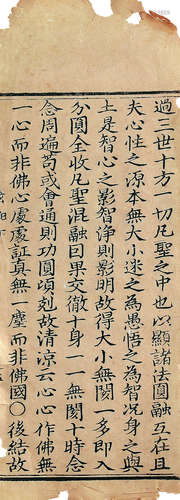 過三世十方一切凡聖之中也以顯諸法圓融互在且
夫心性之源本無大小迷之為愚悟之為智況身之與
土是智心之影智淨則影明故得大小無閡一多即入
分圓全收凡聖混融因果交徹十身一一無閡十時念
念周遍茍或會通則功圓頃剋故清涼云心心作佛無
一心而非佛心處處証真無一塵而非佛國〇後結故